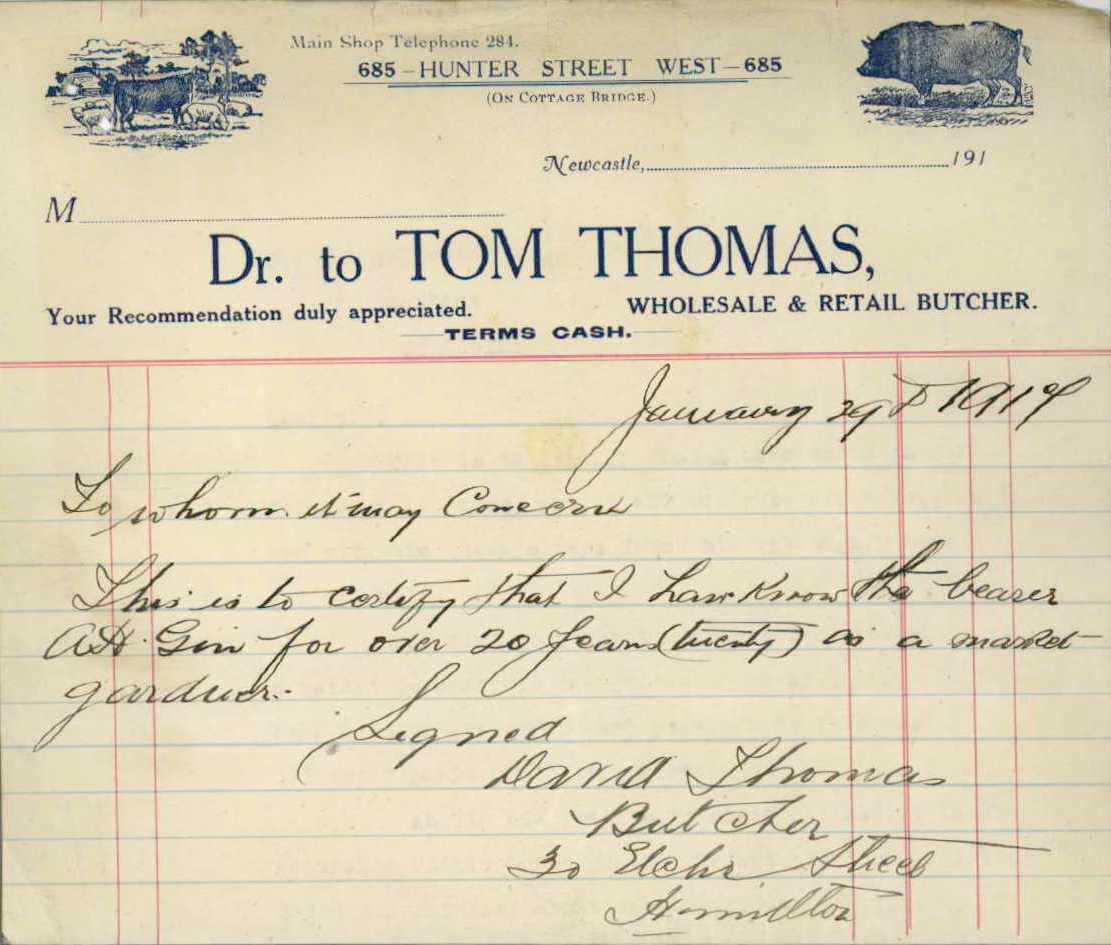 Main Shop Telephone 284.
685 – HUNTER STREET WEST – 685
(On Cottage Bridge.)
Newcastle, 191
M
Dr. to TOM THOMAS,
Your Recommendation duly appreciated. WHOLESALE & RETAIL BUTCHER.
TERMS CASH.
January 29 191
To whom it may Concern
This is to certify that I have know the bearer
Ah Gin for over 20 years (twenty) as a market
gardner.
Signed
David Thomas
Butcher
30 Street
Hamilton